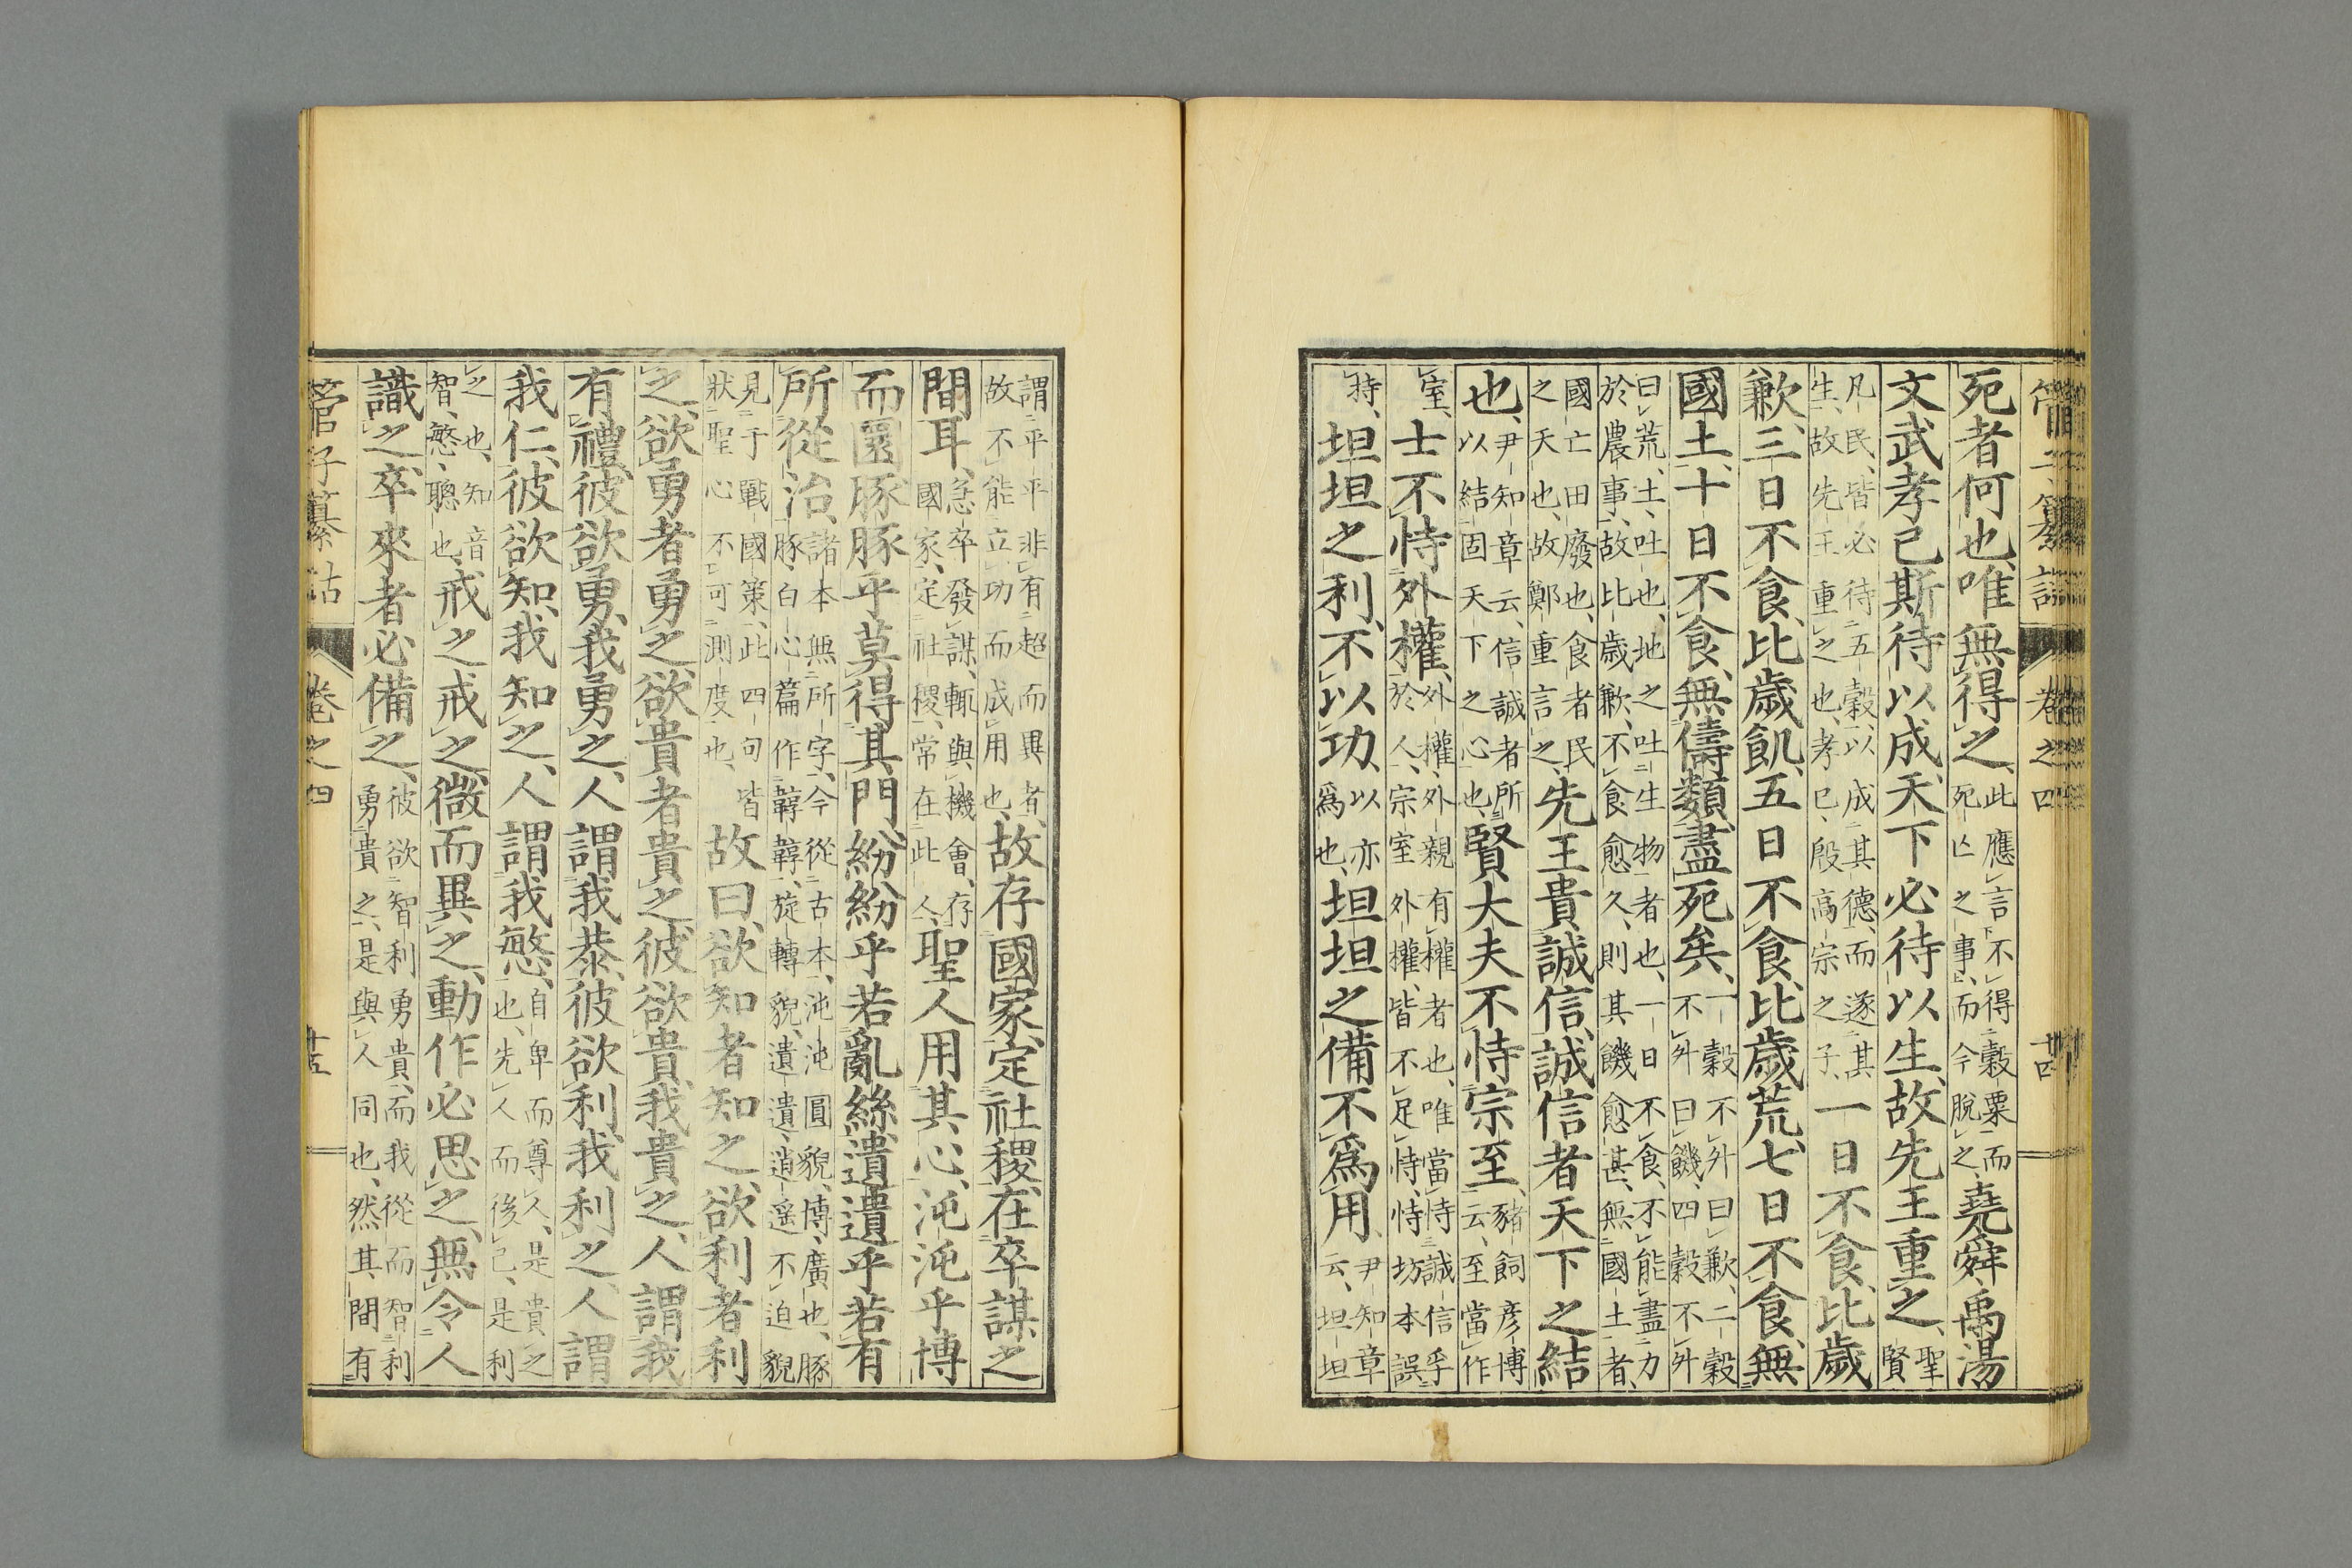 管子纂詁 卷之四 十四
死者何也、唯無得之、此應言不得穀粟而死亾之事、而今脫之堯舜禹湯
文武孝己斯待以成、天下必待以生、故先王重之、聖賢
凡民、皆必待五穀、以成其德、而遂其生、故先王重之也、孝己、殷高宗之子、一日不食、比歲
歉、三日不食、比歲飢、五日不食、比歲荒、七日不食、無
國土、十日不食、無儔類、盡死矣、一穀不升曰歉、二穀不升曰饑、四穀不升
曰荒、土、吐也、地之吐生物者也、一日不食、不能盡力於農事、故比歲歉、不食愈久、則其饑愈甚、無國土者、
國亡田廢也、食者民之天也、故鄭重言之、先王貴誠信、誠信者天下之結
也、尹知章云、信誠者所以結固天下之心也、賢大夫不恃宗至、豬飼彦博云、至當作
室、士不恃外權、外權、外親有權者也、唯當恃誠信乎於人、宗室外權、皆不足恃、恃坊本誤
持、坦坦之利、不以功、以亦爲也、坦坦之備不爲用、尹知章云、坦坦
謂平平非有超而異者、故不能立功而成用也、故存國家、定社稷、在卒謀之
間耳、急卒發謀、輒與機會、存國家、定社稷、常在此人、聖人用其心、沌沌乎博
而圜、豚豚乎莫得其門、紛紛乎若亂絲、遺遺乎若有
所從治、諸本無所字、今從古本、沌沌圓貌、博、廣也、豚豚、白心篇作䩄䩄、旋轉貌、遺遺、逍遙不迫貌
見于戰國策、此四句、皆狀聖心不可測度也、故曰、欲知者知之、欲利者利
之、欲勇者勇之、欲貴者貴之、彼欲貴、我貴之、人謂我
有禮、彼欲勇、我勇之、人謂我恭、彼欲利、我利之、人謂
我仁、彼欲知、我知之、人謂我慜、自卑而尊人、是貴之也、先人而後己、是利
之也、知音智、慜、聰也、戒之、戒之、微而異之、動作必思之、無令人
識之、卒來者必備之、彼欲智利勇貴、而我從而智利勇貴之、是與人同也、然其間有
管子纂詁 卷之四 十五